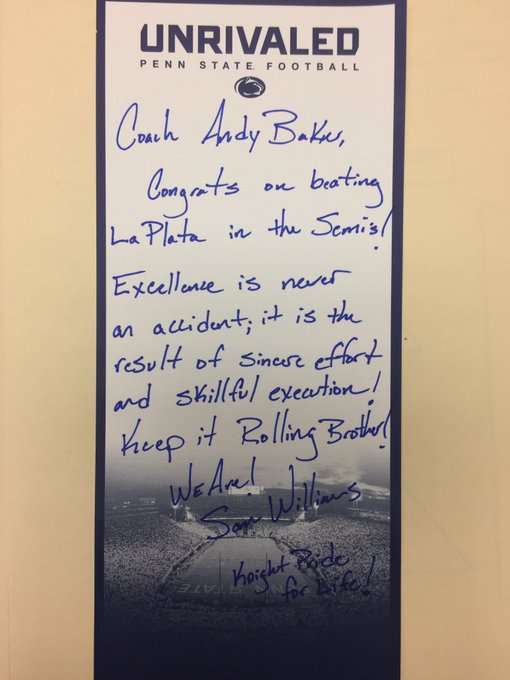 UNRIVALED
PENN STATE FOOTBALL
Coach Andy Baker,
Congrats on beating
La Plata in the Semis!
Excellence is never
an accident; it is the
result of sincere effort
and skillful execution!
Keep it Rolling Brother!
We Are!
Sam Williams
Knight Pride
for Life!